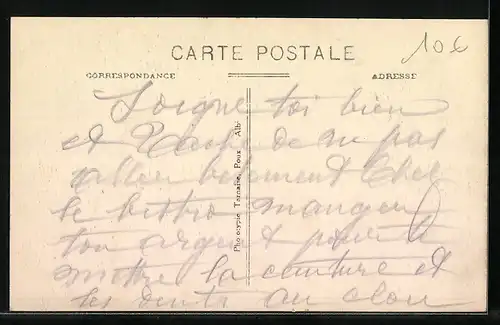 CARTE POSTALE
10€
CORRESPONDANCE
ADRESSE
Soigne toi bien
et tache de ne pas
aller bêtement chez
le bistro manger
ton argent et
mettre la ceinture et
les dents au clou
Phototypie Tarnaise, Poux - Albi